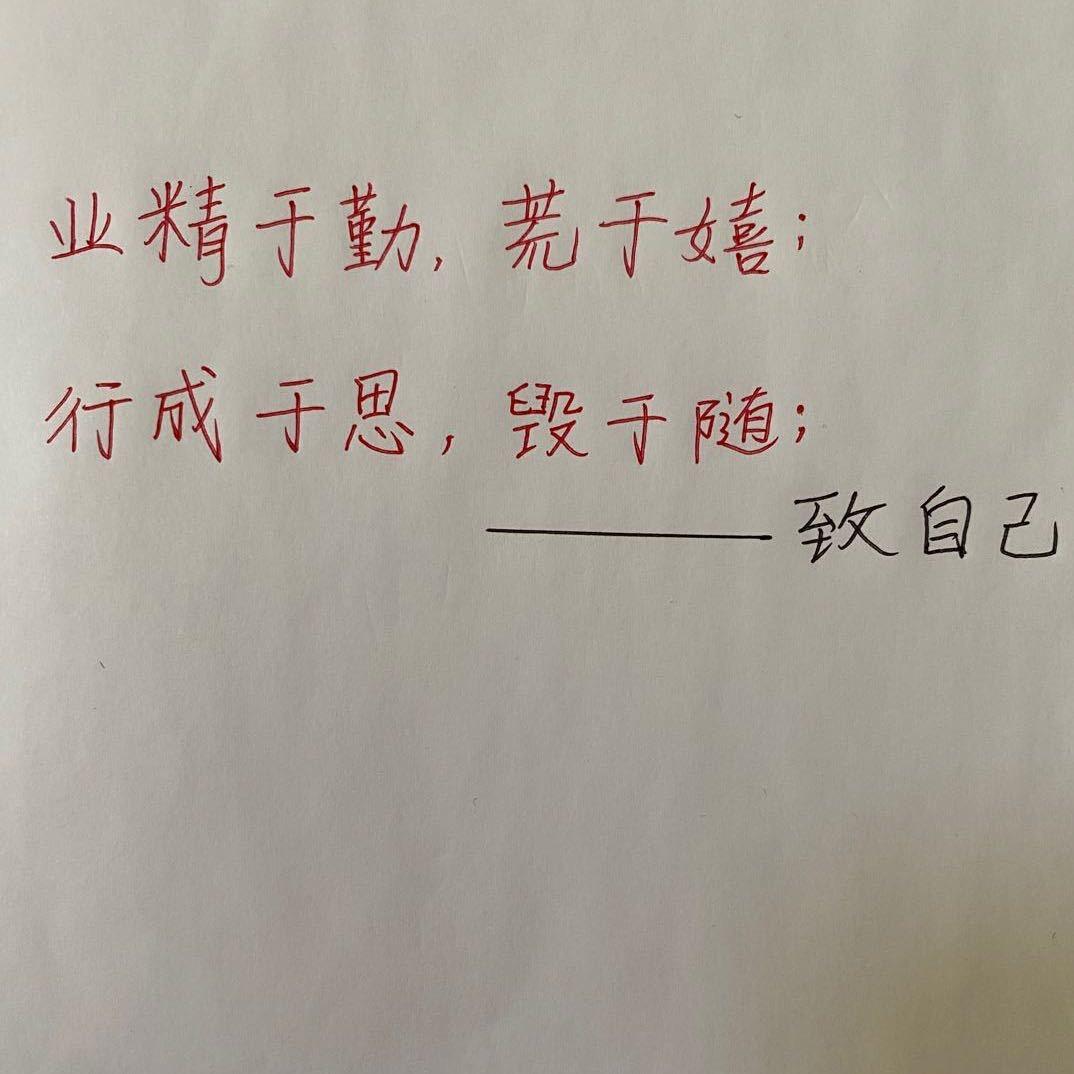 业精于勤,荒于嬉;
行成于思,毁于随;
———致自己